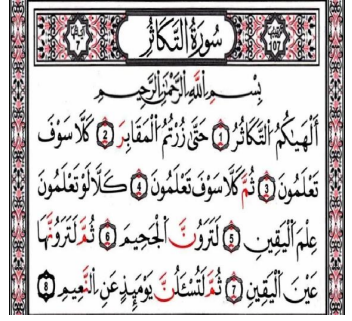 107 سُورَةُ التَّكَاثُرِ 7
بِسْمِ اللّٰهِ الرَّحْمٰنِ الرَّحِيمِ
أَلْهَيٰكُمُ التَّكَاثُرُ 1 حَتّٰى زُرْتُمُ الْمَقَابِرَ 2 كَلَّا سَوْفَ
تَعْلَمُونَ 3 ثُمَّ كَلَّا سَوْفَ تَعْلَمُونَ 4 كَلَّا لَوْ تَعْلَمُونَ
عِلْمَ الْيَقِينِ 5 لَتَرَوُنَّ الْجَحِيمَ 6 ثُمَّ لَتَرَوُنَّهَا
عَيْنَ الْيَقِينِ 7 ثُمَّ لَتُسْئَلُنَّ يَوْمَئِذٍ عَنِ النَّعِيمِ 8